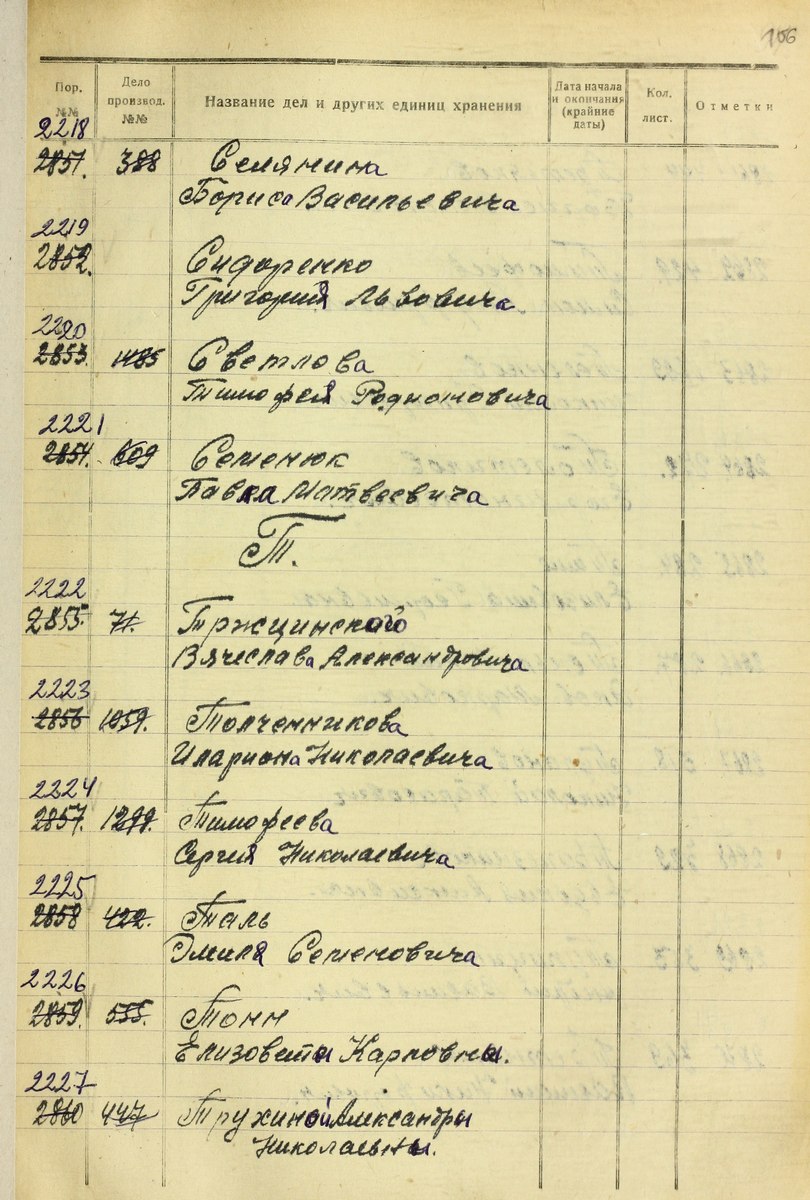 106
Пор. №№
Дело производ. №№
Название дел и других единиц хранения
Дата начала и окончания (крайние даты)
Кол. лист.
Отметки
2218
2851. 388 Селянина
Бориса Васильевича
2219
2852. Сидоренко
Григория Львовича
2220
2853. 1485 Светлова
Тимофея Родионовича
2221
2854. 609 Семенюк
Павла Матвеевича
Т.
2222
2855. 71. Тржцинского
Вячеслава Александровича
2223
2856 1059. Толченникова
Илариона Николаевича
2224
2857. 1299. Тимофеева
Сергея Николаевича
2225
2858 422. Таль
Эмиля Семеновича
2226
2859. 555. Тонн
Елизоветы Карловны.
2227
2860 447 Трухиной Александры
Николаевны.